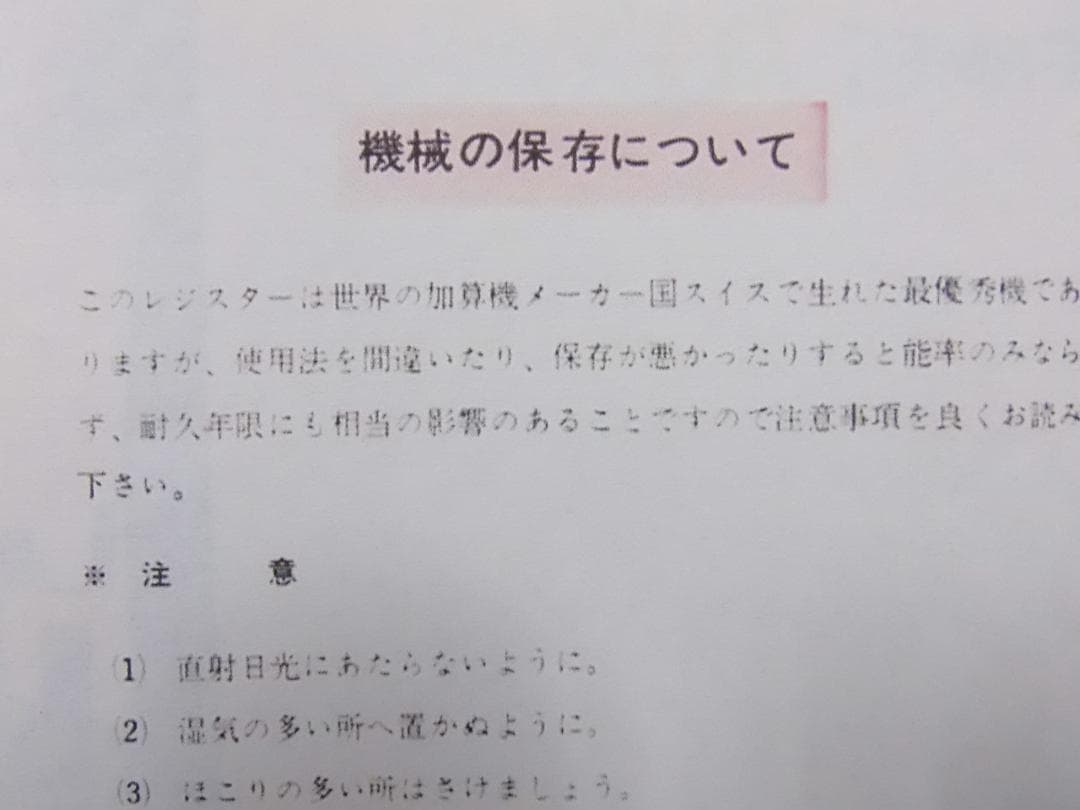 機械の保存について
このレジスターは世界の加算機メーカー国スイスで生れた最優秀機であ
りますが、使用法を間違いたり、保存が悪かったりすると能率のみなら
ず、耐久年限にも相当の影響のあることですので注意事項を良くお読み
下さい。
※ 注 意
(1) 直射日光にあたらないように。
(2) 湿気の多い所へ置かぬように。
(3) ほこりの多い所はさけましょう。